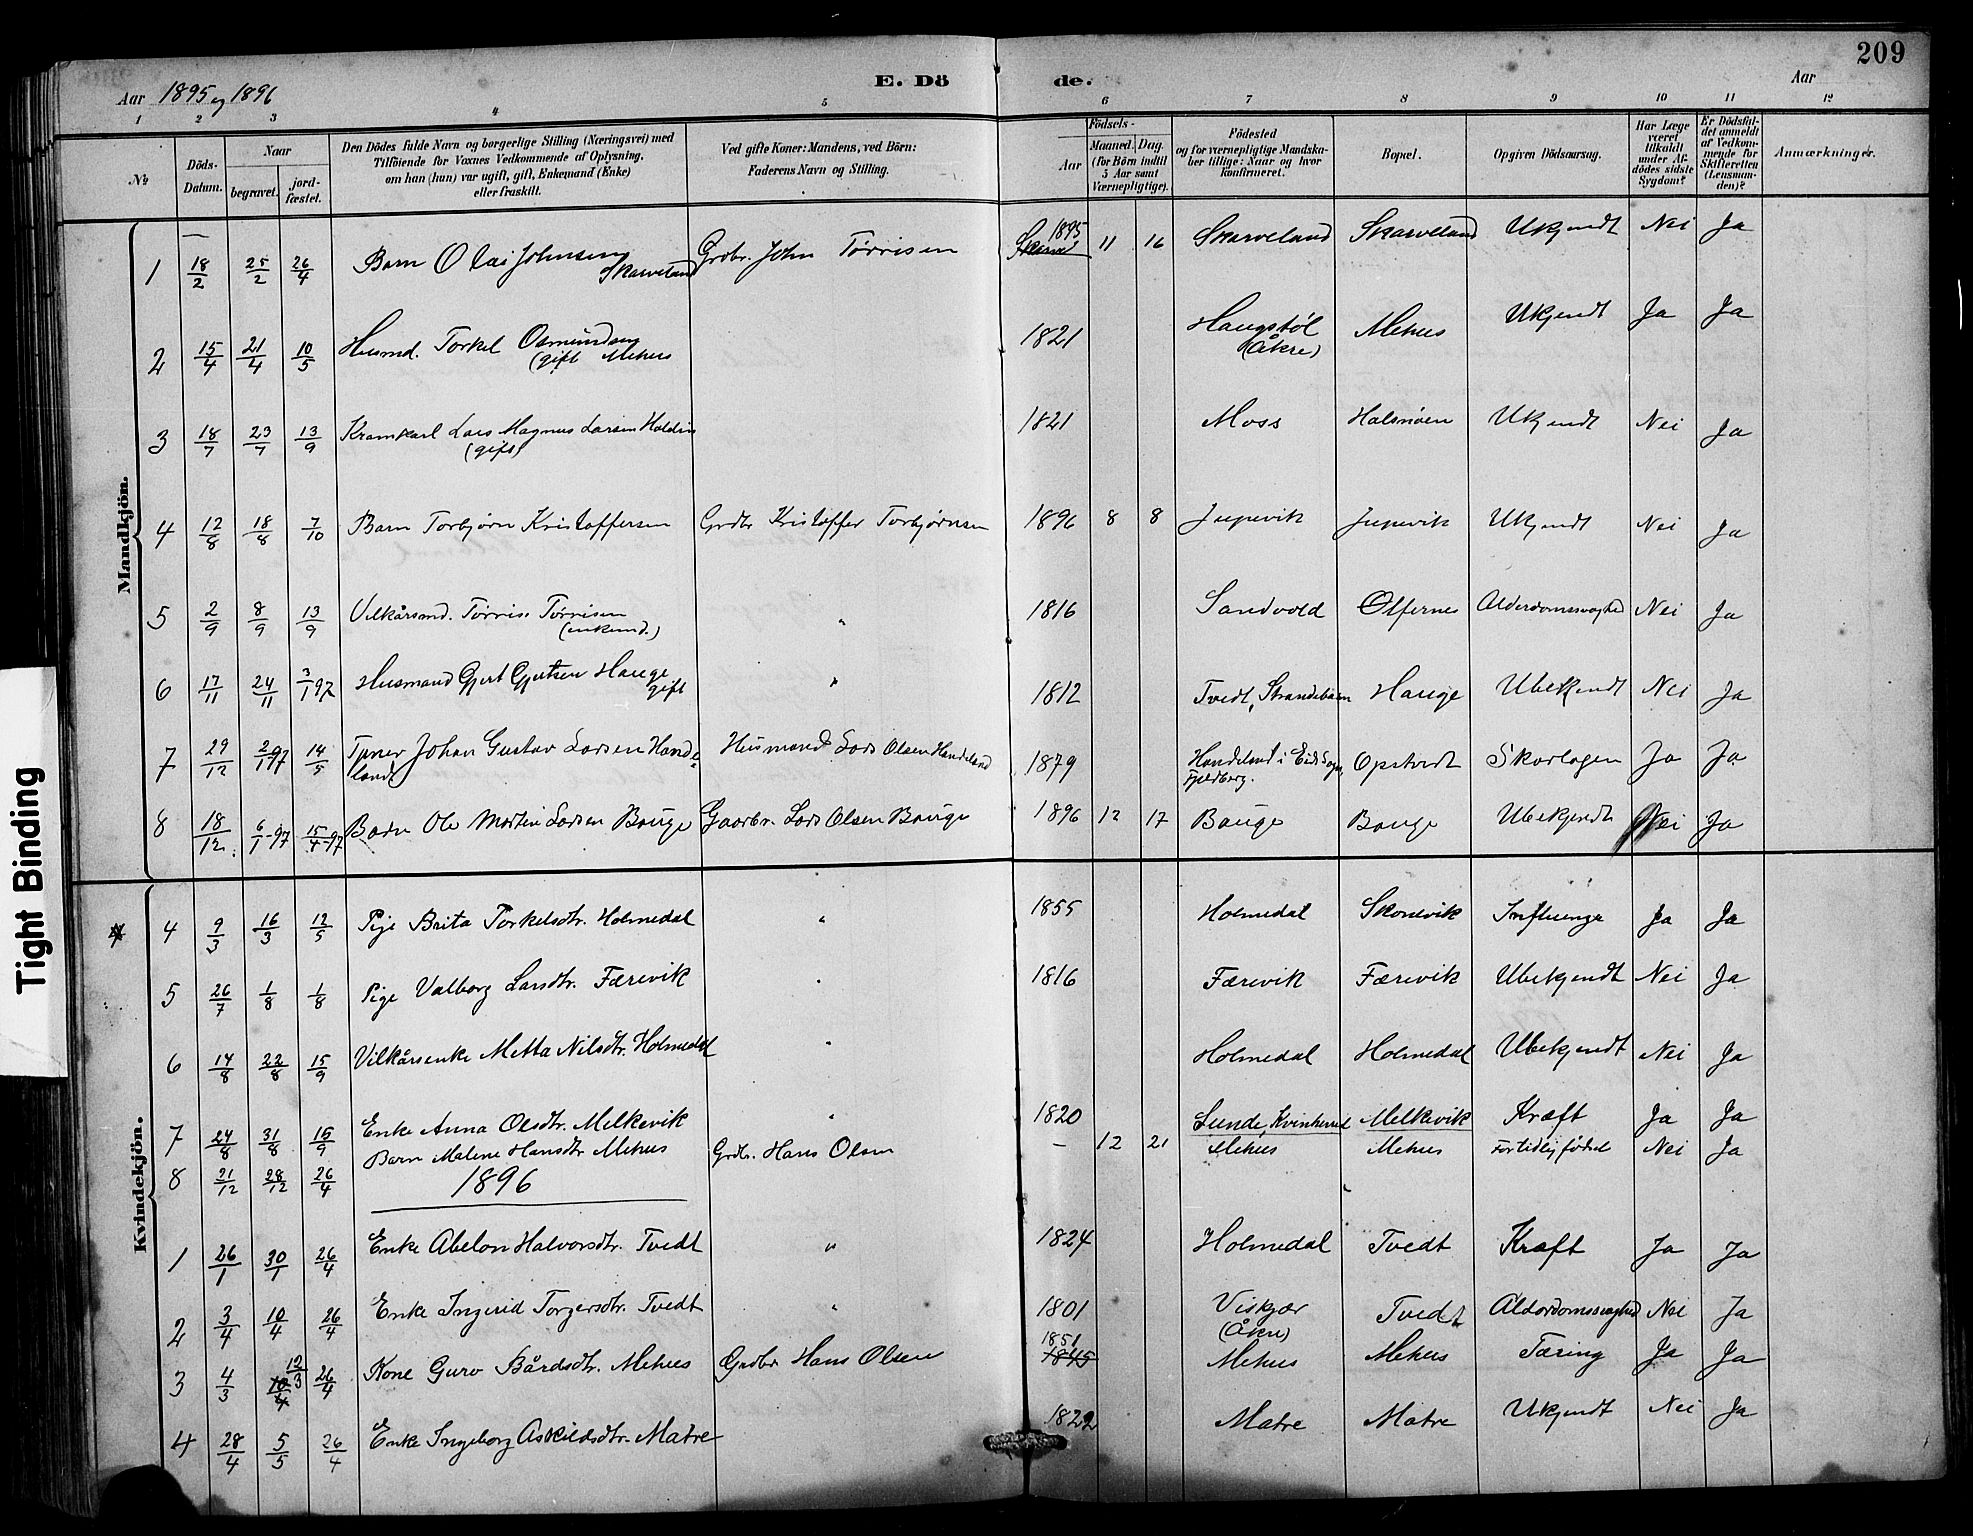 209
Aar 1895 og 1896
E. Dö de.
Aar
1 2 3 4 5 6 7 8 9 10 11 12
No
Döds-Datum.
Naar
begravet.
jordfæstet.
Den Dödes fulde Navn og borgerlige Stilling (Næringsvei) med Tilföiende for Voxnes Vedkommende af Oplysning, om han (hun) var ugift, gift, Enkemand (Enke) eller fraskilt.
Ved gifte Koner: Mandens, ved Börn: Faderens Navn og Stilling.
Födsels-
Aar
Maaned. Dag.
(for Börn indtil 5 Aar samt Værnepligtige).
Födested og for værnepligtige Mandskaber tillige: Naar og hvor konfirmeret.
Bopæl.
Opgiven Dödsaarsag.
Har Læge været tilkaldt under Afdödes sidste Sygdom?
Er Dödsfaldet anmeldt af Vedkommende for Skifteretten (Lensmanden)?
Anmærkninger.
Mandkjön.
1 18/2 25/2 26/4 Barn Olai Johnsen Skarveland Grdbr. John Tørrisen 1895 11 16 Skarveland Skarveland Ukjendt Nei Ja
2 15/4 21/4 10/5 Husmd. Torkel Osmundsen (gift Mehus 1821 Haugstøl (Åkre) Mehus Ukjendt Ja Ja
3 18/7 23/7 13/9 Kramkarl Lars Magnus Larsen Holdin (gift) 1821 Moss Halsnøen Ukjendt Nei Ja
4 12/8 18/8 7/10 Barn Torbjørn Kristoffersen Grdbr Kristoffer Torbjørnsen 1896 8 8 Jupevik Jupevik Ukjendt Nei Ja
5 2/9 8/9 13/9 Vilkårsmd. Tørris Tørrisen (enkemd.) " 1816 Sandvold Ølfernes Alderdomssvaghed Nei Ja
6 17/11 24/11 3/1 97 Husmand Gjert Gjertsen Hauge gift " 1812 Tvedt, Strandebarm Hauge Ubekjendt Nei Ja
7 29/12 2/1 97 14/5 Tjener Johan Gustav Larsen Handeland Husmand Lars Olsen Handeland 1879 Handeland i Eids Sogn, Fjeldberg. Opstvedt Skarlagen Ja Ja
8 18/12 6/1-97 15/4-97 Barn Ole Martin Larsen Bauge Gaardbr. Lars Olsen Bauge 1896 12 17 Bauge Bauge Ubekjendt Nei Ja
Kvindekjön.
4 9/3 16/3 12/5 Pige Brita Torkelsdtr. Holmedal " 1855 Holmedal Skonevik Influenza Ja Ja
5 26/7 1/8 1/8 Pige Valborg Larsdtr. Færevik " 1816 Færevik Færevik Ubekjendt Nei Ja
6 14/8 22/8 15/9 Vilkårsenke Metta Nilsdtr. Holmedal " Holmedal Holmedal Ubekjendt Nei Ja
7 24/8 31/8 15/9 Enke Anna Olsdtr. Melkevik " 1820 Sunde, Kvinherred Melkevik Kræft Ja Ja
8 21/12 28/12 26/4 Barn Malene Hansdtr Mehus Grdbr. Hans Olsen – 12 21 Mehus Mehus For tidlig fødsel Nei Ja
1896
1 26/1 30/1 26/4 Enke Abelon Halvorsdtr. Tvedt " 1824 Holmedal Tvedt Kræft Ja Ja
2 3/4 10/4 26/4 Enke Ingerid Torgersdtr. Tvedt " 1801 Viskjær (Åkre) Tvedt Alderdomssvaghed Nei Ja
3 4/3 12/3 26/4 Kone Guro Bårdsdtr. Mehus Grdbr Hans Olsen 1851 1845 Mehus Mehus Tæring Ja Ja
4 28/4 5/5 26/4 Enke Ingeborg Askildsdtr. Matre 1822 Matre Matre Ukjendt Nei Ja
Tight Binding